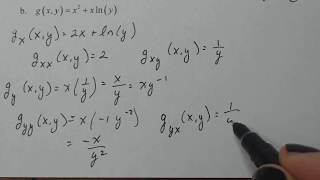 b. g(x, y) = x² + x ln(y)
gₓ(x,y) = 2x + ln(y)
gₓₓ(x,y) = 2 gₓᵧ(x,y) = 1/y
gᵧ(x,y) = x(1/y) = x/y = xy⁻¹
gᵧᵧ(x,y) = x(-1 y⁻²) gᵧₓ(x,y) = 1/y
= -x/y²